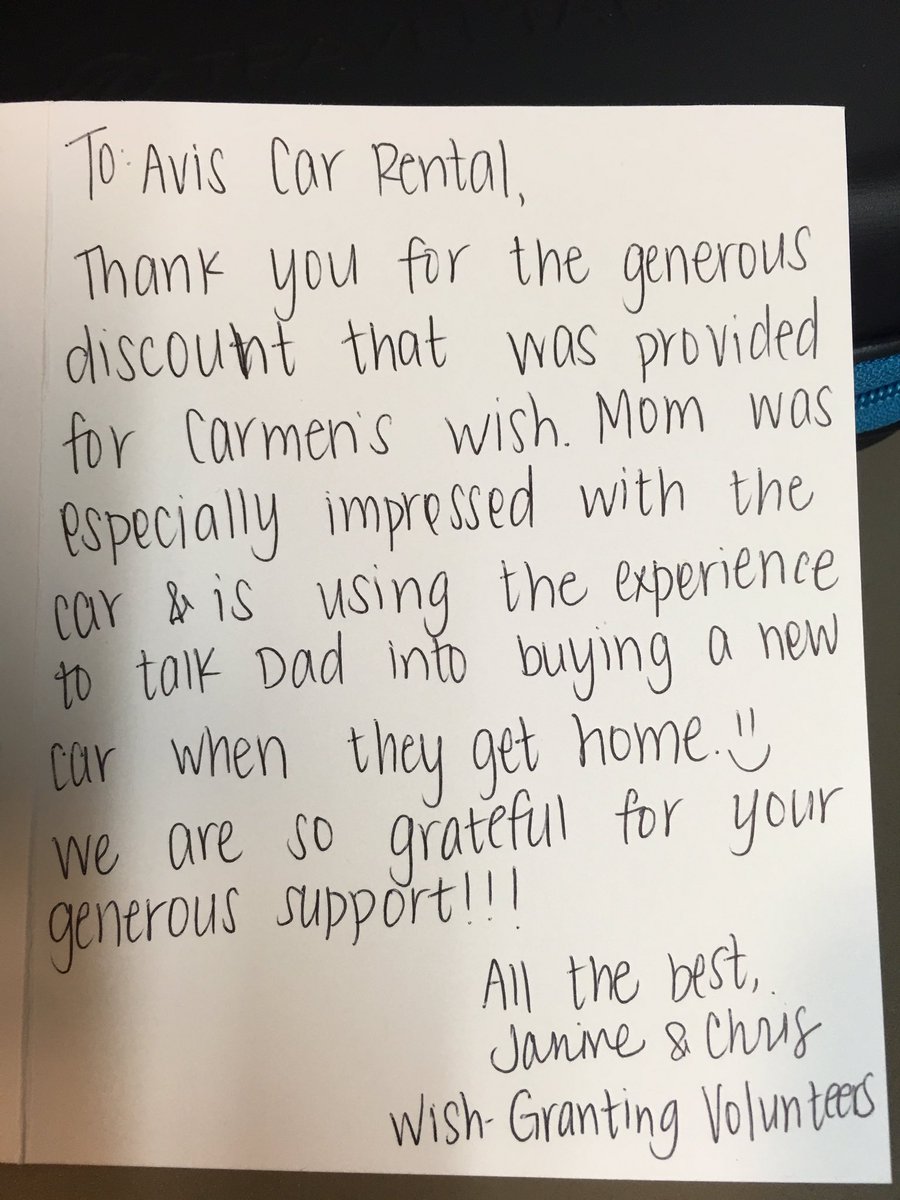 To: Avis Car Rental,
Thank you for the generous
discount that was provided
for Carmen's wish. Mom was
especially impressed with the
car & is using the experience
to talk Dad into buying a new
car when they get home.
we are so grateful for your
generous support!!!
All the best,
Janine & Chris
Wish-Granting Volunteers